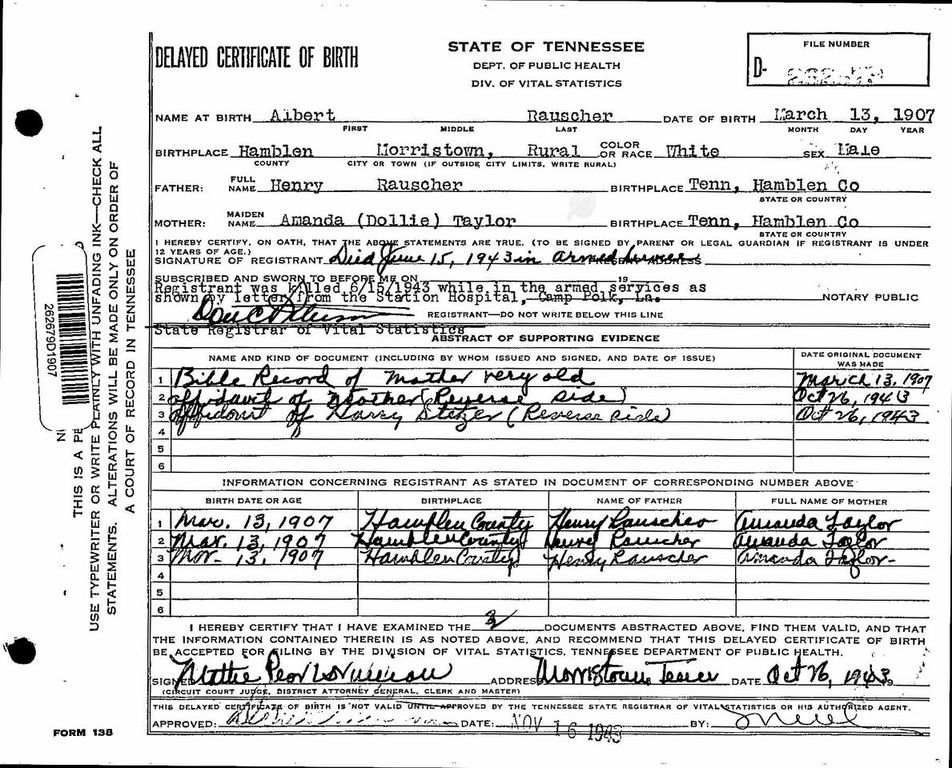 DELAYED CERTIFICATE OF BIRTH
STATE OF TENNESSEE
DEPT. OF PUBLIC HEALTH
DIV. OF VITAL STATISTICS
FILE NUMBER
D-
NAME AT BIRTH Albert Rauscher DATE OF BIRTH March 13, 1907
FIRST MIDDLE LAST MONTH DAY YEAR
BIRTHPLACE Hamblen Morristown, Rural COLOR OR RACE White SEX Male
COUNTY CITY OR TOWN (IF OUTSIDE CITY LIMITS, WRITE RURAL)
FATHER: FULL NAME Henry Rauscher BIRTHPLACE Tenn, Hamblen Co
STATE OR COUNTRY
MOTHER: MAIDEN NAME Amanda (Dollie) Taylor BIRTHPLACE Tenn, Hamblen Co
STATE OR COUNTRY
I HEREBY CERTIFY, ON OATH, THAT THE ABOVE STATEMENTS ARE TRUE. (TO BE SIGNED BY PARENT OR LEGAL GUARDIAN IF REGISTRANT IS UNDER
12 YEARS OF AGE.)
SIGNATURE OF REGISTRANT Died June 15, 1943 in armed ADDRESS
SUBSCRIBED AND SWORN TO BEFORE ME ON 19
Registrant was killed 6/15/1943 while in the armed services as
shown by letter from the Station Hospital, Camp Polk, La. NOTARY PUBLIC
REGISTRANT—DO NOT WRITE BELOW THIS LINE
State Registrar of Vital Statistics
ABSTRACT OF SUPPORTING EVIDENCE
NAME AND KIND OF DOCUMENT (INCLUDING BY WHOM ISSUED AND SIGNED, AND DATE OF ISSUE) DATE ORIGINAL DOCUMENT WAS MADE
1 Bible Record of Mother very old March 13, 1907
2 affidavit of Mother (Reverse side) Oct 26, 1943
3 affidavit of Harry Stetzer (Reverse side) Oct 26, 1943
4
5
6
INFORMATION CONCERNING REGISTRANT AS STATED IN DOCUMENT OF CORRESPONDING NUMBER ABOVE
BIRTH DATE OR AGE BIRTHPLACE NAME OF FATHER FULL NAME OF MOTHER
1 Mar. 13, 1907 Hamblen County Henry Rauscher Amanda Taylor
2 Mar. 13, 1907 Hamblen County Henry Rauscher Amanda Taylor
3 Mar. 13, 1907 Hamblen County Henry Rauscher Amanda Taylor
4
5
6
I HEREBY CERTIFY THAT I HAVE EXAMINED THE 3 DOCUMENTS ABSTRACTED ABOVE, FIND THEM VALID, AND THAT
THE INFORMATION CONTAINED THEREIN IS AS NOTED ABOVE, AND RECOMMEND THAT THIS DELAYED CERTIFICATE OF BIRTH
BE ACCEPTED FOR FILING BY THE DIVISION OF VITAL STATISTICS, TENNESSEE DEPARTMENT OF PUBLIC HEALTH.
SIGNED Mattie ADDRESS Morristown, Tenn DATE Oct 26, 1943
(CIRCUIT COURT JUDGE, DISTRICT ATTORNEY GENERAL, CLERK AND MASTER)
THIS DELAYED CERTIFICATE OF BIRTH IS NOT VALID UNTIL APPROVED BY THE TENNESSEE STATE REGISTRAR OF VITAL STATISTICS OR HIS AUTHORIZED AGENT.
APPROVED: DATE: NOV 16 1943 BY:
FORM 138
26267 9D1907
THIS IS A PE
USE TYPEWRITER OR WRITE PLAINLY WITH UNFADING INK—CHECK ALL
STATEMENTS. ALTERATIONS WILL BE MADE ONLY ON ORDER OF
A COURT OF RECORD IN TENNESSEE